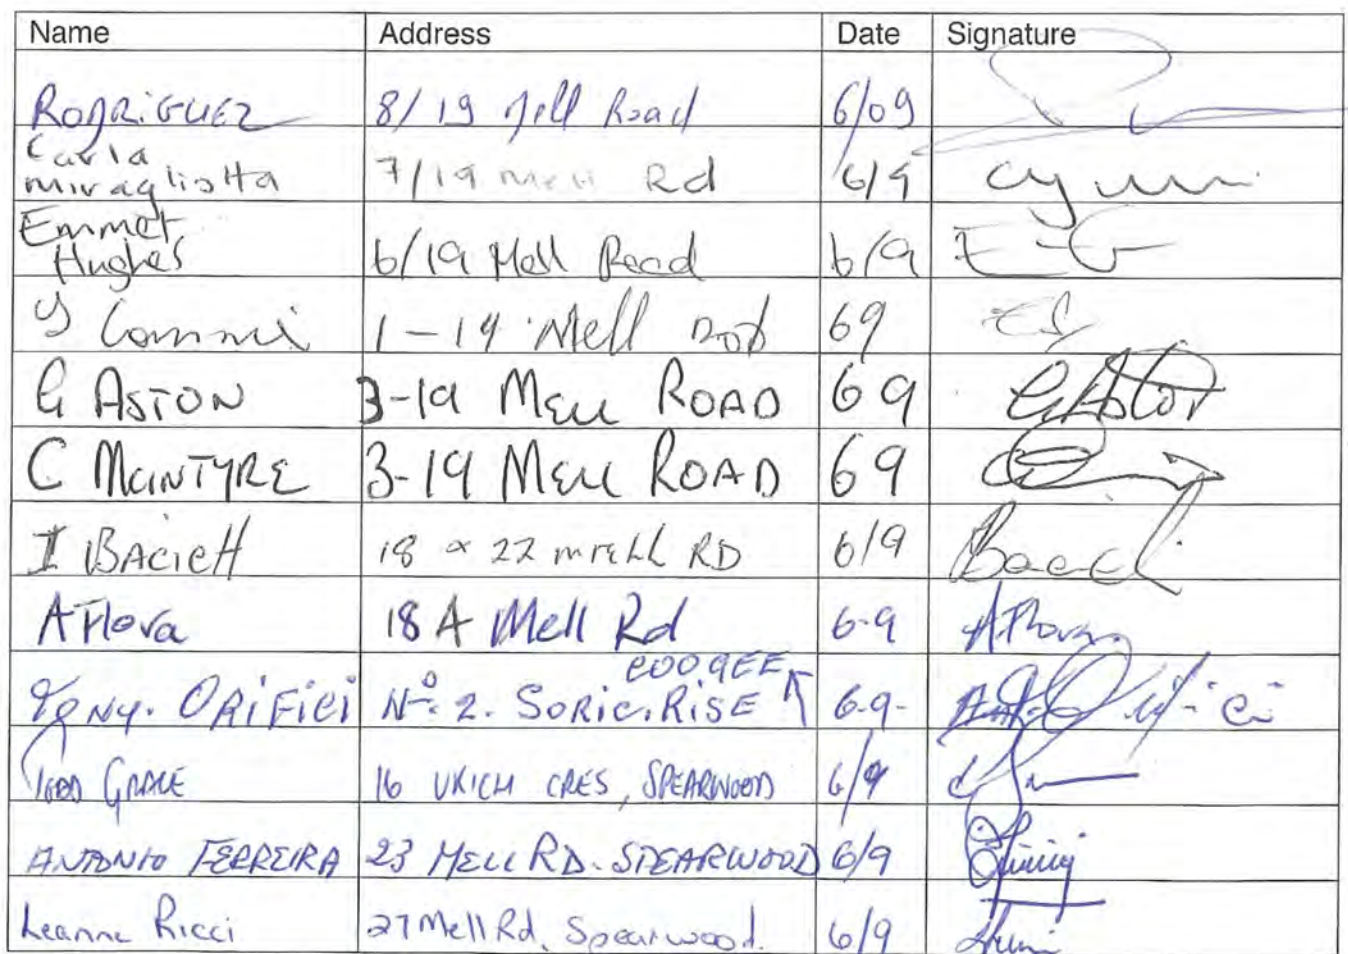 Name Address Date Signature
RODRIGUEZ 8/19 Mell Road 6/09
Carla
Miragliotta 7/19 Mell Rd 6/9
Emmet
Hughes 6/19 Mell Road 6/9
1-19 Mell 69
G ASTON 3-19 MELL ROAD 69 G Aston
C MCINTYRE 3-19 MELL ROAD 69
I BACICH 18 22 MELL RD 6/9 Bacich
A Flova 18A Mell Rd 6-9 A Flova
COOGEE
TONY. ORiFiCi Nº. 2. SORIC. RiSE 6-9-
TODD GRACE 16 VKICH CRES, SPEARWOOD 6/9
ANTONIO FERREIRA 23 MELL RD. SPEARWOOD 6/9
Leanne Ricci 27 Mell Rd, Spearwood. 6/9